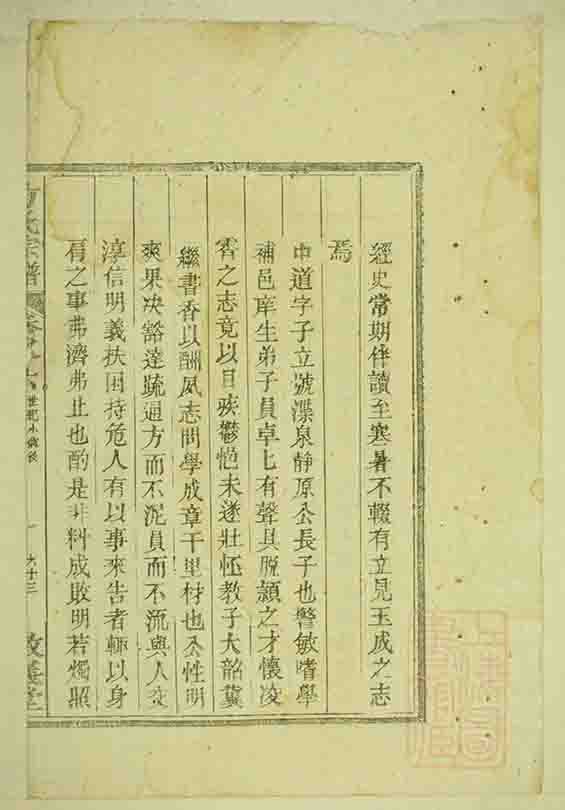 經史常期伴讀至寒暑不輟有立見玉成之志
焉
中道字子立號澡泉靜原公長子也警敏嗜學
補邑庠生弟子員卓七有聲具脫穎之才懷凌
雲之志竟以目疾鬱悒未遂壯怀教子大韶冀
繼書香以酬夙志問學成章千里材也公性明
爽果决豁達疏通方而不泥員而不流與人交
淳信明義扶困持危人有以事來告者輒以身
肩之事弗濟弗止也酌是非料成敗明若燭照
氏宗譜 世紀小傳 六十三